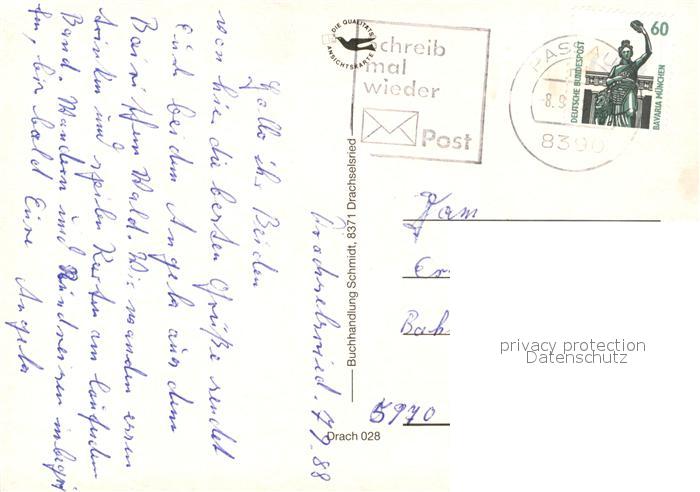 Drachselsried. 7.9.88
Hallo ihr Beiden
von hie die besten Grüße sendet
Euch beiden Angela aus dem
Bairischen Wald. Wir wandern essen
trinken und spielen Karten am laufenden
Band. Wandern und
bis bald Eure Angela
DIE QUALITÄTS
ANSICHTSKARTE
schreib
mal
wieder
Post
PASSAU
-8.9
8390
60
DEUTSCHE BUNDESPOST
BAVARIA MÜNCHEN
Buchhandlung Schmidt, 8371 Drachselsried
Fam
Er
Bah
5970
Drach 028
privacy protection
Datenschutz